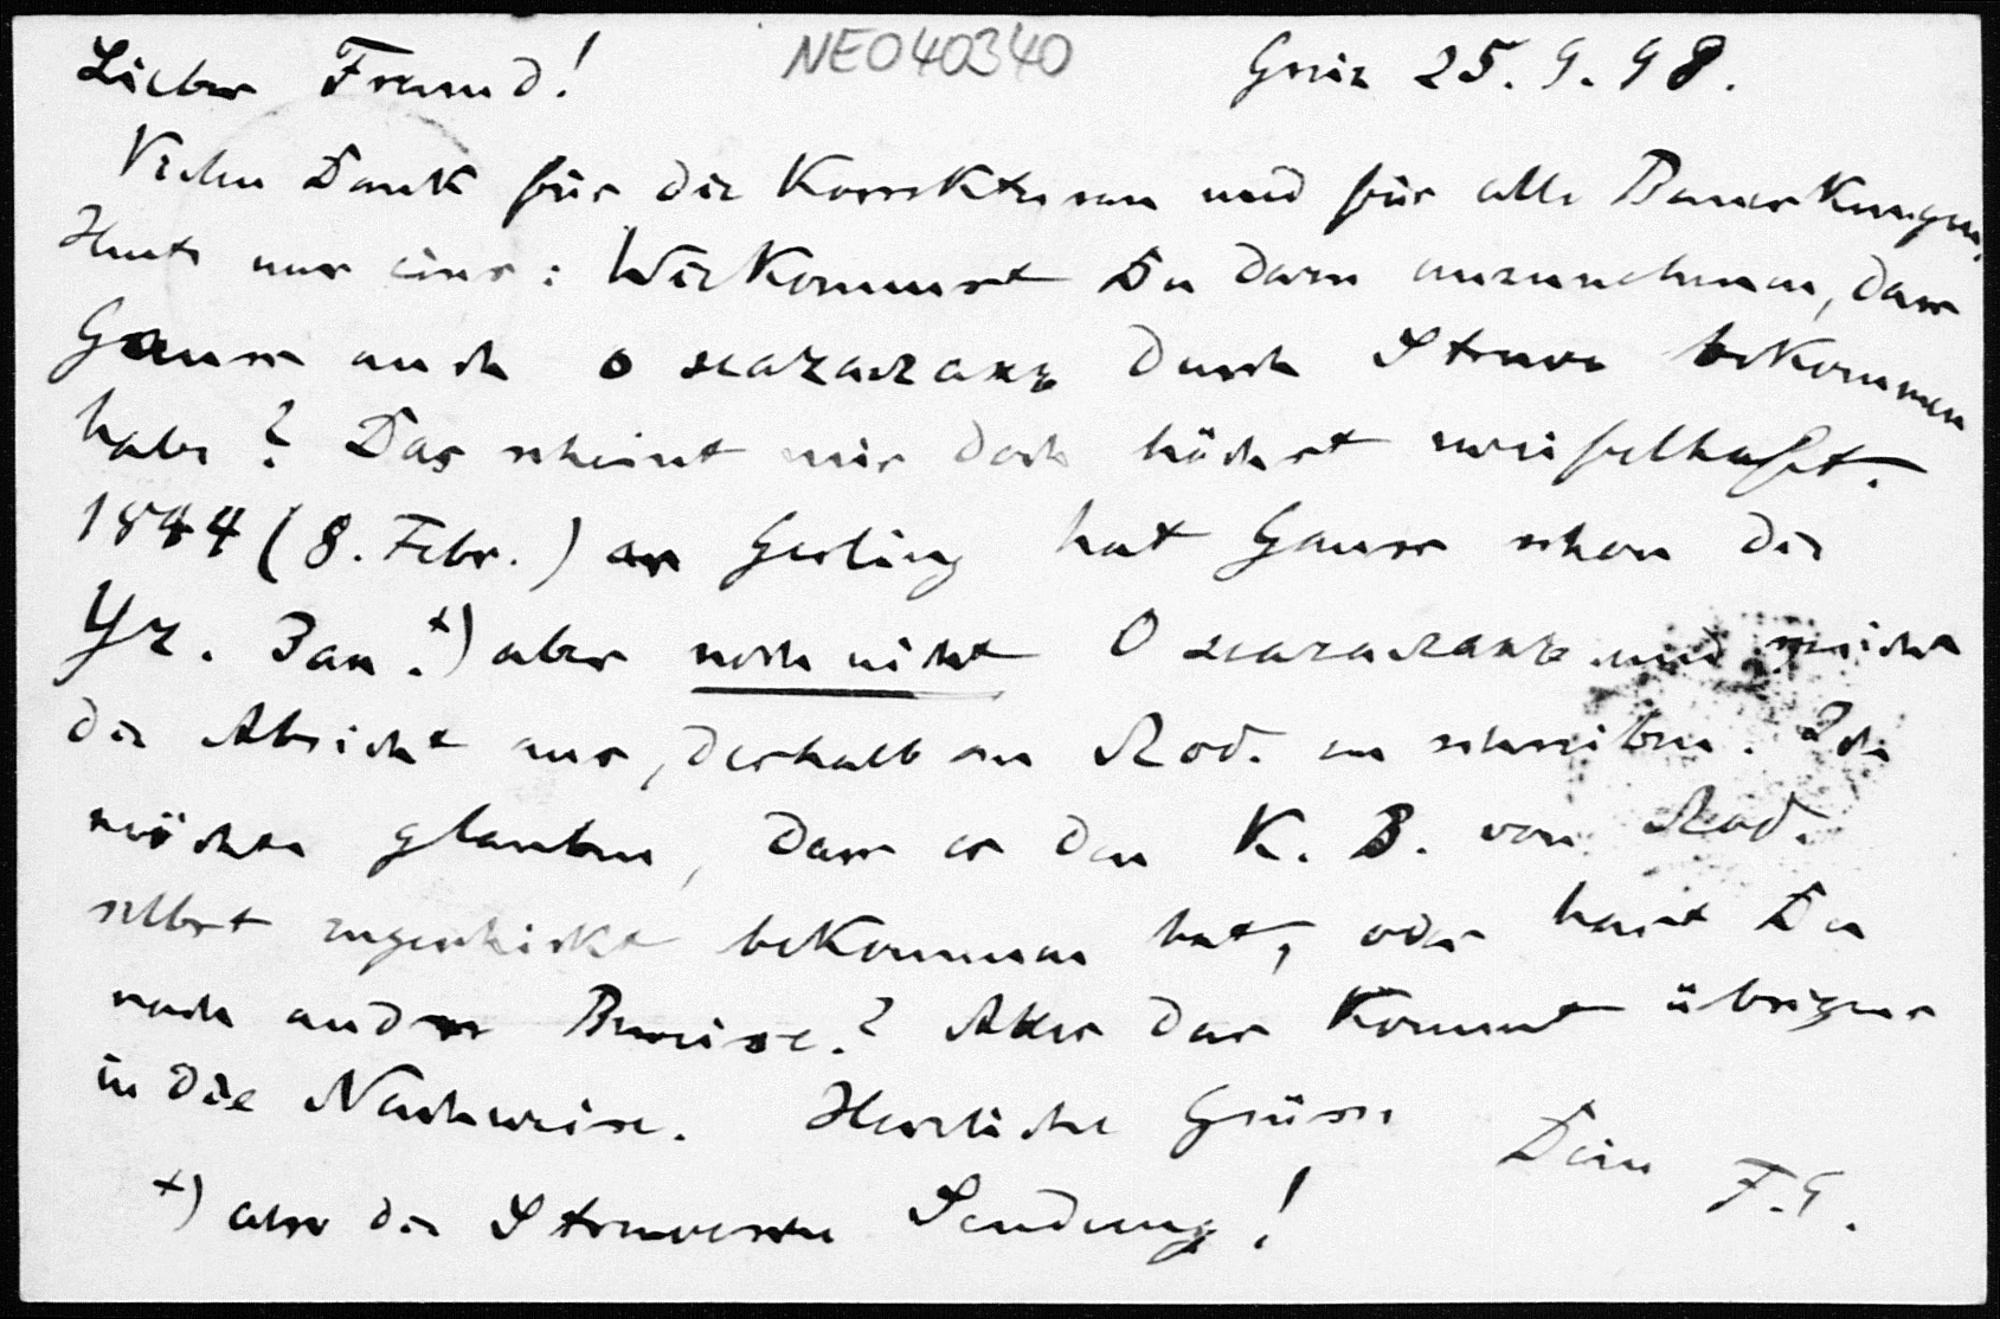 Lieber Freund! NEO40340 Greiz 25.9.98.
Vielen Dank für die Korrekturen und für alle Bemerkungen.
Heute nur eins: Wie kommst Du dazu anzunehmen, dass
Gauss auch о началахъ durch Struve bekommen
habe? Das scheint mir doch höchst zweifelhaft.
1844 (8. Febr.) an Gerling hat Gauss schon die
Уч. Зап. +) aber noch nicht О началахъ und spricht
die Absicht aus, deshalb an Лоб. zu schreiben. Ich
möchte glauben, dass er den К. В. von Лоб.
selbst zugeschickt bekommen hat, oder hast Du
noch andre Beweise? Aber das kommt übrigens
in die Nachweise. Herzliche Grüsse
Dein F. E.
+) also die Struvesche Sendung!